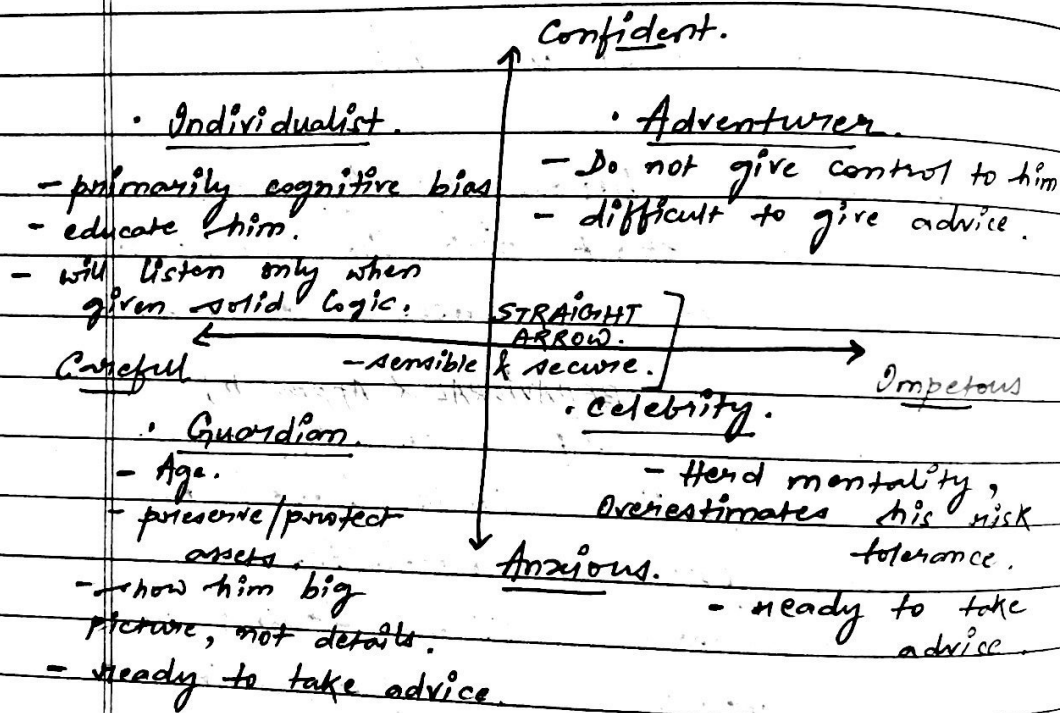 Confident.
· Individualist.
- primarily cognitive bias
- educate him.
- will listen only when
given solid logic.
· Adventurer.
- Do not give control to him
- difficult to give advice.
STRAIGHT
ARROW.
- sensible & secure.
Careful
Impetous
· Guardian.
- Age.
- preserve/protect
assets.
- show him big
picture, not details.
- ready to take advice.
· Celebrity.
- Herd mentality,
Overestimates his risk
tolerance.
- ready to take
advice.
Anxious.